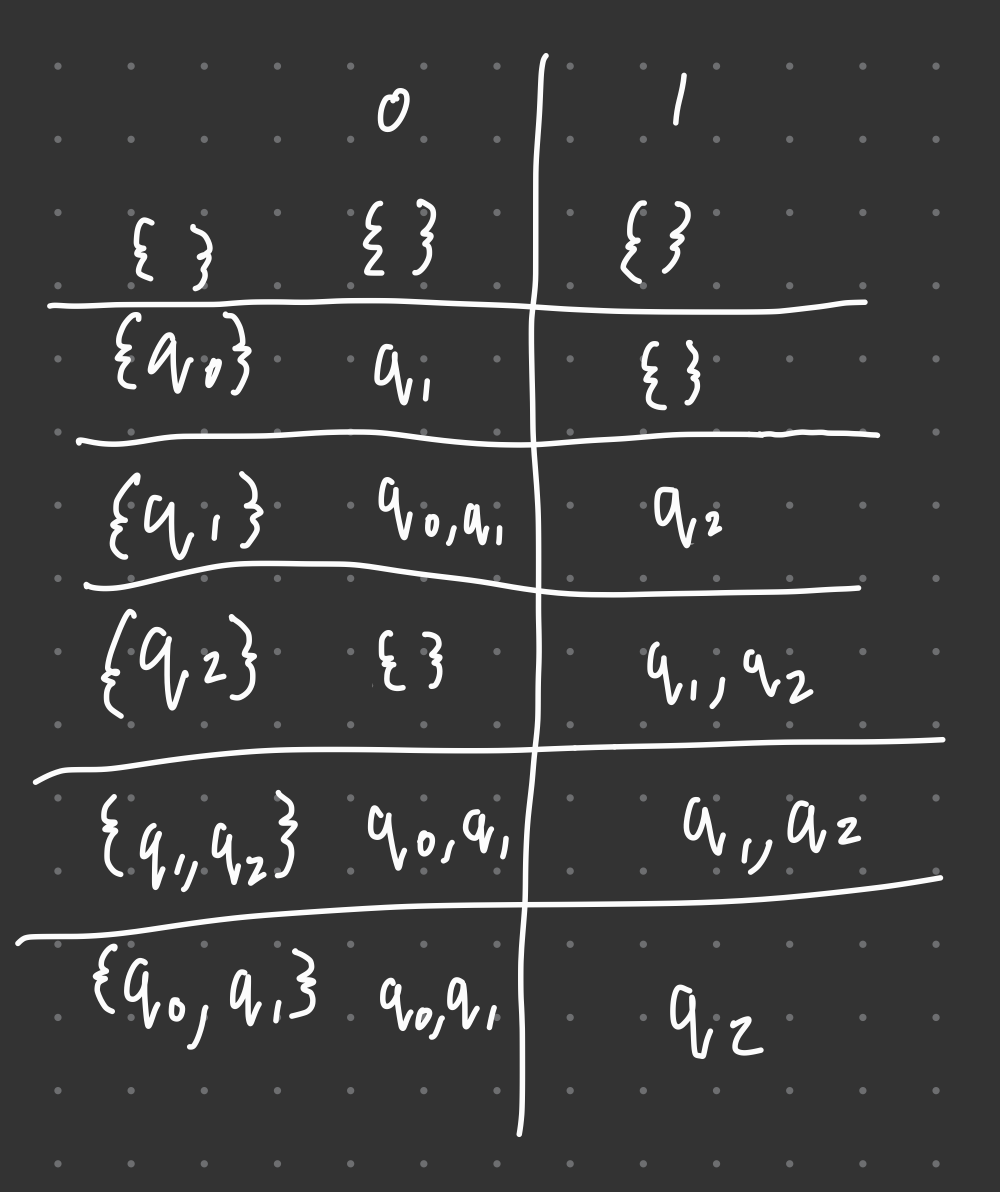 0 1
{ } { } { }
{q0} q1 { }
{q1} q0,q1 q2
{q2} { } q1,q2
{q1,q2} q0,q1 q1,q2
{q0,q1} q0,q1 q2